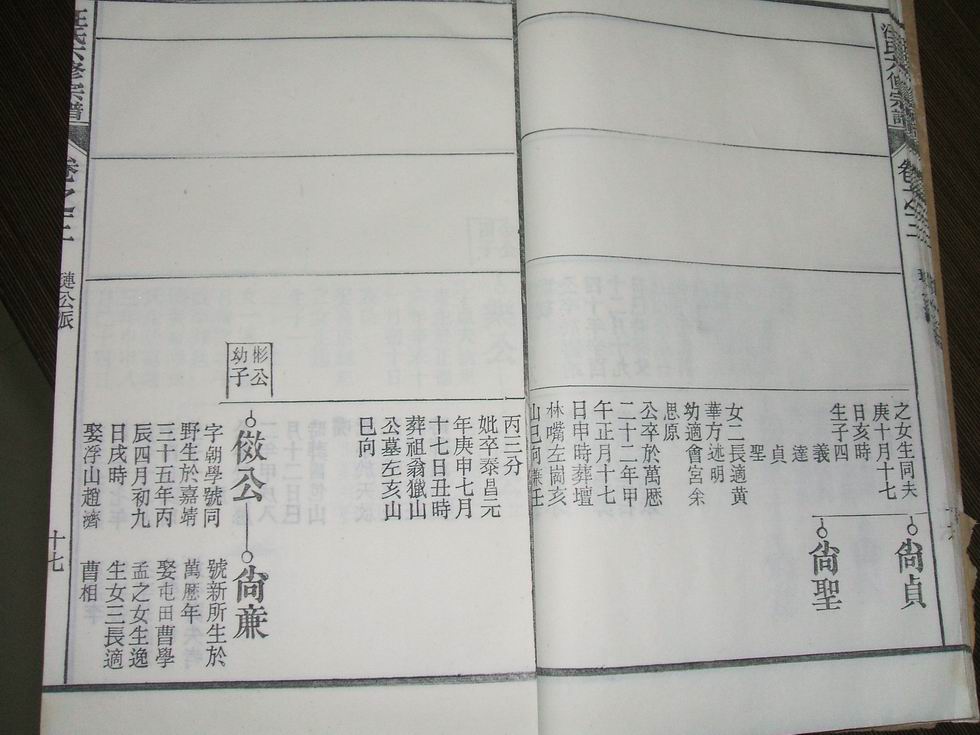 汪氏六修宗譜
卷之二
尙貞
尙聖
之女生同夫
庚十月十七
日亥時
生子四
義
達
貞
聖
女二長適黃
華方述明
幼適會宮余
思原
公卒於萬歷
二十二年甲
午正月十七
日申時葬壇
林嘴左崗亥
山巳向兼壬
丙三分
妣卒泰昌元
年庚申七月
十七日丑時
葬祖翁獵山
公墓左亥山
巳向
彬公
幼子
儆公
字朝學號同
野生於嘉靖
三十五年丙
辰四月初九
日戌時
娶浮山趙濟
尙亷
號新所生於
萬歷年
娶屯田曹學
孟之女生逸
生女三長適
曹相
汪氏六修宗譜
卷之二
璉公派
十七